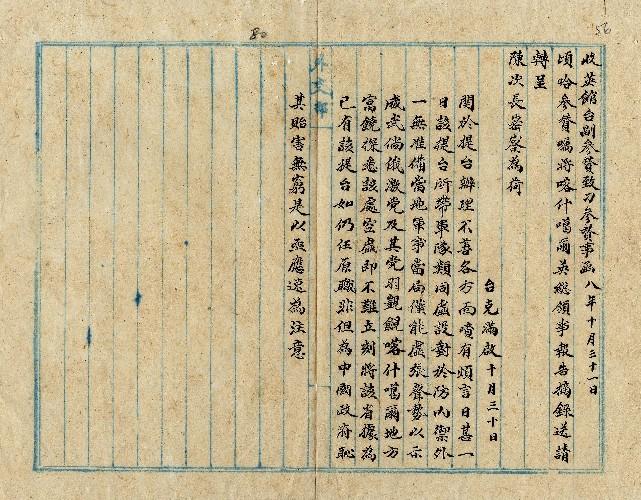 56
收英館台副參贊致刁參贊事函 八年十月三十一日
頃哈參贊囑將喀什噶爾英總領事報告摘錄送請
轉呈
陳次長密察為荷
台克滿啟 十月三十日
關於提台辦理不善各方面嘖有煩言日甚一
日該提台所帶軍隊類同虛設對於防內禦外
一無准備當地軍事當局僅能虛張聲勢以示
威武倘俄激党及其党羽覬覦喀什噶爾地方
富饒探悉該處空虛即不難立刻將該省據為
已有該提台如仍任原職非但為中國政府恥
其貽害無窮是以亟應速為注意
外交部
80